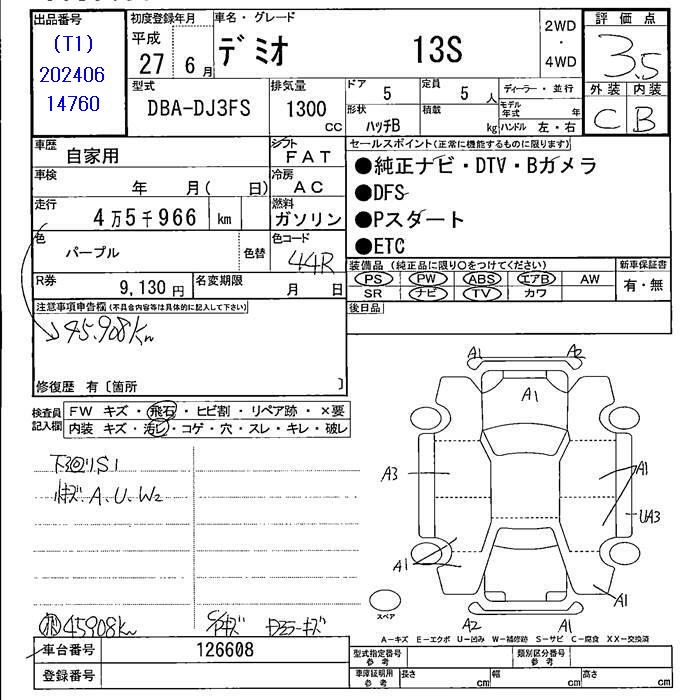 出品番号 初度登録年月 車名・グレード 2WD・4WD 評価点
(T1) 平成 27 6月 デミオ 13S 3.5
202406
14760
型式 排気量 ドア 定員 ディーラー・並行 外装 内装
DBA-DJ3FS 1300 cc 5 5人 モデル年式 年 C B
形状 積載
ハッチB kg ハンドル 左・右
車歴 自家用 シフト FAT セールスポイント(正常に機能するものに限ります)
車検 年 月( 日) 冷房 AC ●純正ナビ・DTV・Bカメラ
●DFS
走行 4万5千966 km 燃料 ガソリン ●Pスタート
色 パープル 色替 色コード 44R ●ETC
装備品(純正品に限り○をつけてください) 新車保証書
R券 9,130円 名変期限 月 日 PS PW ABS エアB AW 有・無
SR ナビ TV カワ
注意事項申告欄(不具合内容等は具体的に記入して下さい) 後日品
45.908km
修復歴 有〔箇所 〕
検査員記入欄 FW キズ・飛石・ヒビ割・リペア跡・×要
内装 キズ・汚レ・コゲ・穴・スレ・キレ・破レ
下廻リS1
A.U.W2
A1 A2
A1
A3 A1
UA3
A1 A1
A2 A1
スペア
45908km
A-キズ E-エクボ U-凹み W-補修跡 S-サビ C-腐食 XX-交換済
車台番号 126608 型式指定番号 参考 類別区分番号 参考
登録番号 車庫証明用 参考 長さ cm 幅 cm 高さ cm